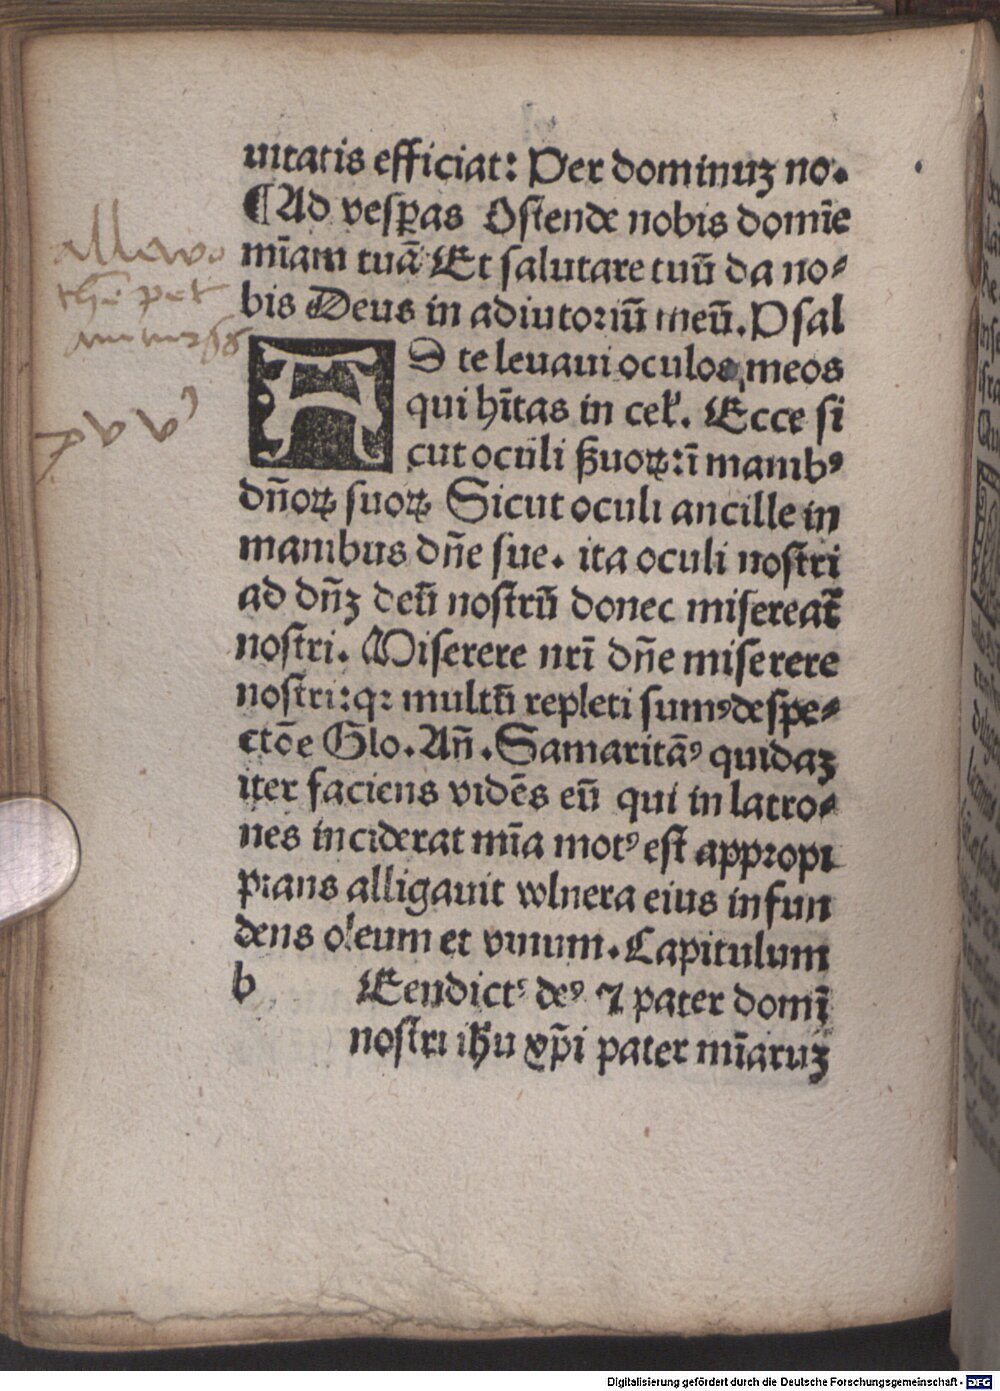 uitatis efficiat: Per dominuꝫ no.
¶Ad vesꝑas Ostende nobis domīe
mīam tuā Et salutare tuū da no⸗
bis Deus in adiutoꝛiū meū. Psal
AD te leuaui oculos meos
qui hītas in cel̵. Ecce si
cut oculi ẜuoꝝ: ī manibꝰ
dn̄oꝝ suoꝝ Sicut oculi ancille in
manibus dn̄e sue. ita oculi nostri
ad dn̄ꝫ deū nostrū donec misereat̄
nostri. Miserere nr̄i dn̄e miserere
nostri: qꝛ multū repleti sumꝰ despe⸗
ctōe Glo. An̄. Samaritāꝰ quidaꝫ
iter faciens vidēs eū qui in latro⸗
nes inciderat mīa motꝰ est appꝛopi
pians alligauit vulnera eius infun
dens oleum et vinum. Capitulum
b Eendictꝰ deꝰ ⁊ pater domī
nostri ih̄u xp̄i pater mīaruꝫ
Digitalisierung gefördert durch die Deutsche Forschungsgemeinschaft - DFG